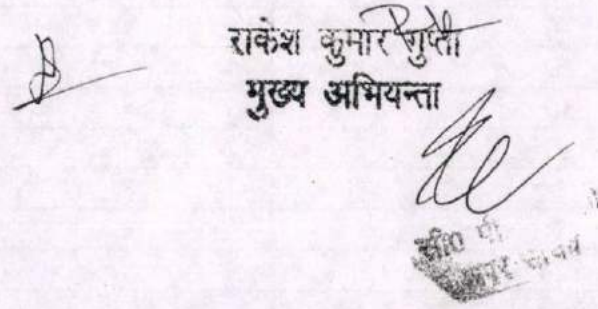 राकेश कुमार गुप्ता
मुख्य अभियन्ता
सी0 पी